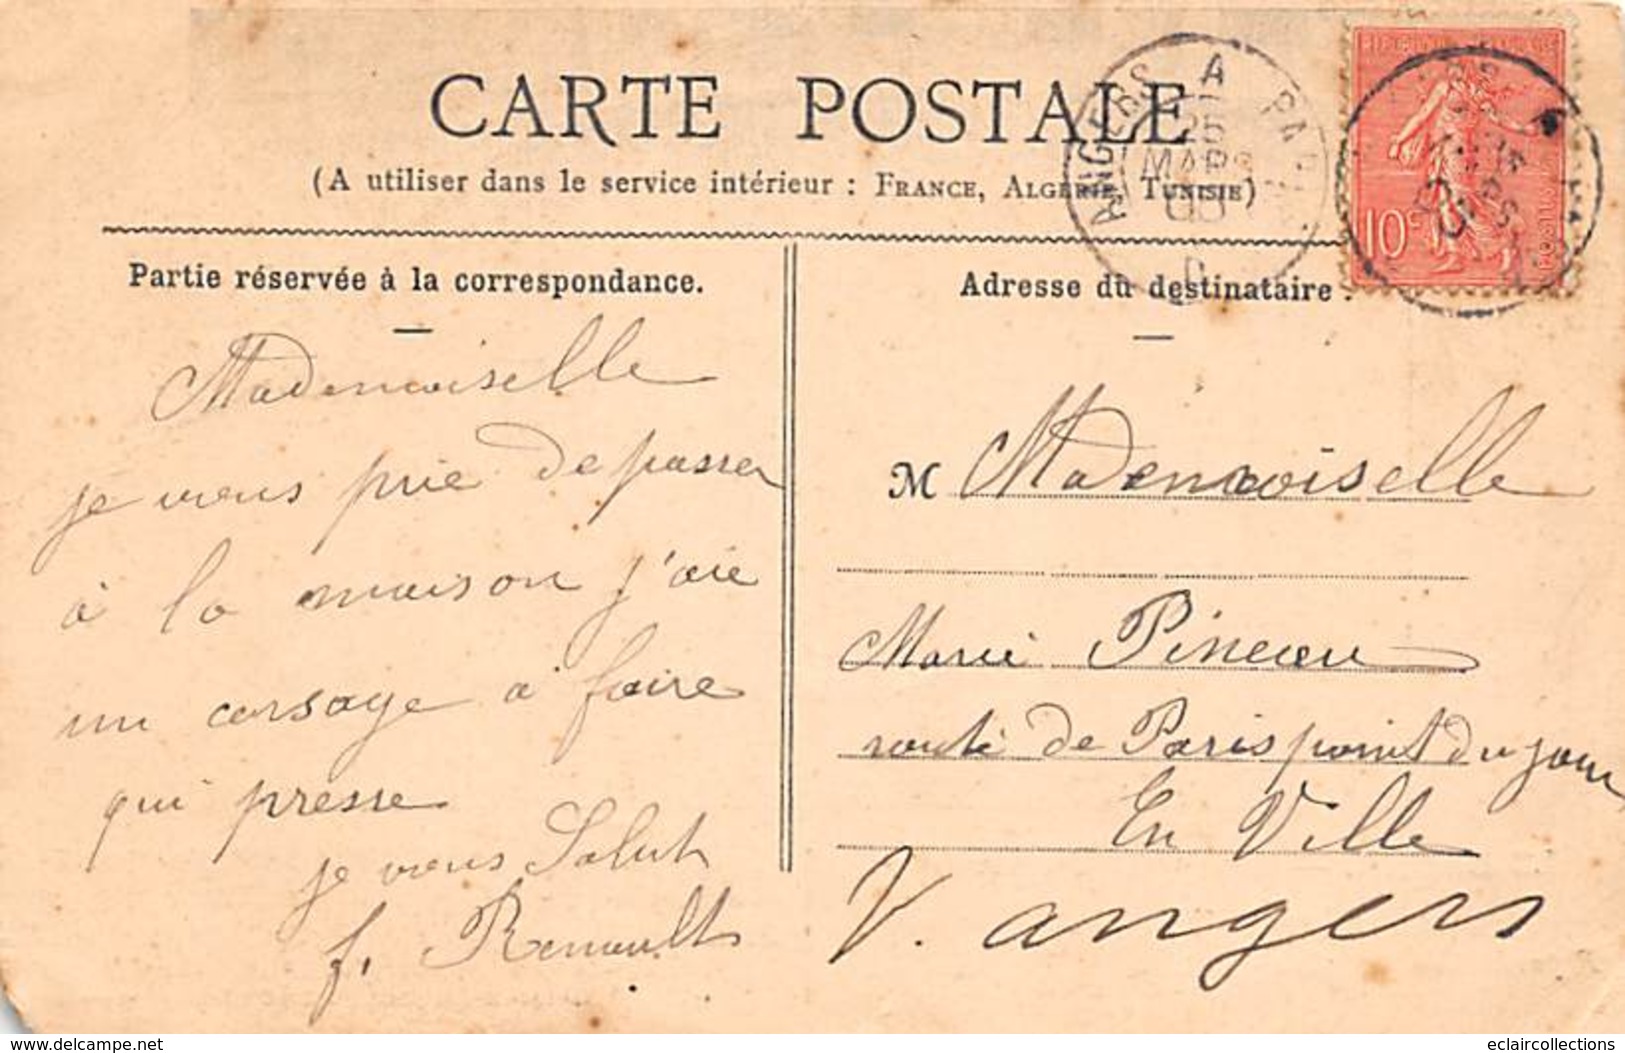 CARTE POSTALE
(A utiliser dans le service intérieur : FRANCE, ALGERIE, TUNISIE)
ANGERS A PARIS
25
MARS
D
10c
POSTES
Partie réservée à la correspondance.
Mademoiselle
je vous prie de passer
à la maison j'aie
un corsage a faire
qui presse
je vous Salut
f. Renault
Adresse du destinataire.
M Mademoiselle
Marie Pineau
route de Paris point du jour
En Ville
V. angers
delcampe.net
eclaircollections